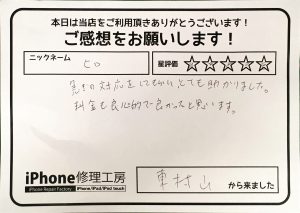 本日は当店をご利用頂きありがとうございます!
ご感想をお願いします!
ニックネーム
ヒロ
星評価 ☆☆☆☆☆
急な対応をしてもらいとても助かりました。
料金も良心的で良かったと思います。
iPhone修理工房
iPhone Repair Factory iPhone/iPad/iPod touch
東村山 から来ました